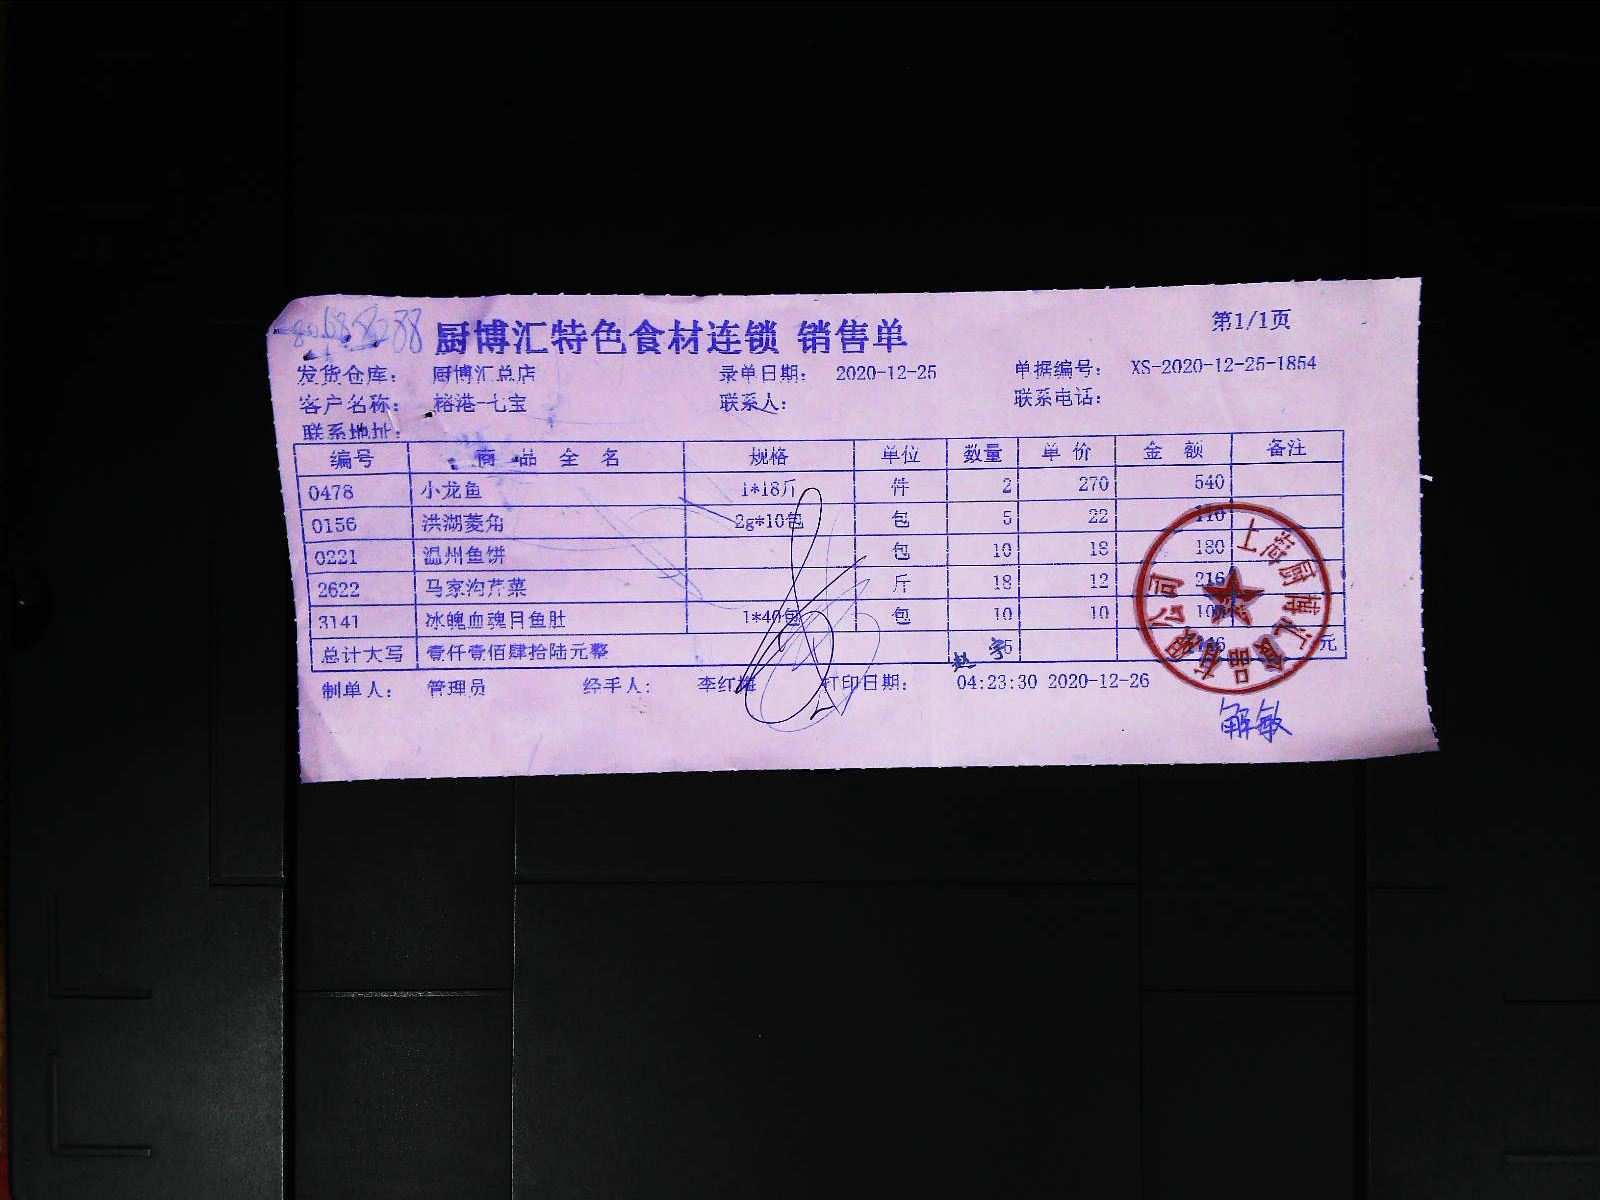 8068 8288
厨博汇特色食材连锁 销售单 第1/1页
发货仓库： 厨博汇总店 录单日期： 2020-12-25 单据编号： XS-2020-12-25-1854
客户名称： 榕港-七宝 联系人： 联系电话：
联系地址：
编号 商 品 全 名 规格 单位 数量 单 价 金 额 备注
0478 小龙鱼 1*18斤 件 2 270 540
0156 洪湖菱角 2g*10包 包 5 22 110
0221 温州鱼饼 包 10 18 180
2622 马家沟芹菜 斤 18 12 216
3141 冰魄血魂目鱼肚 1*40包 包 10 10 100
总计大写 壹仟壹佰肆拾陆元整 5 1146 元
赵宇
制单人： 管理员 经手人： 李红梅 打印日期： 04:23:30 2020-12-26
上海厨博汇食品有限公司
解敏